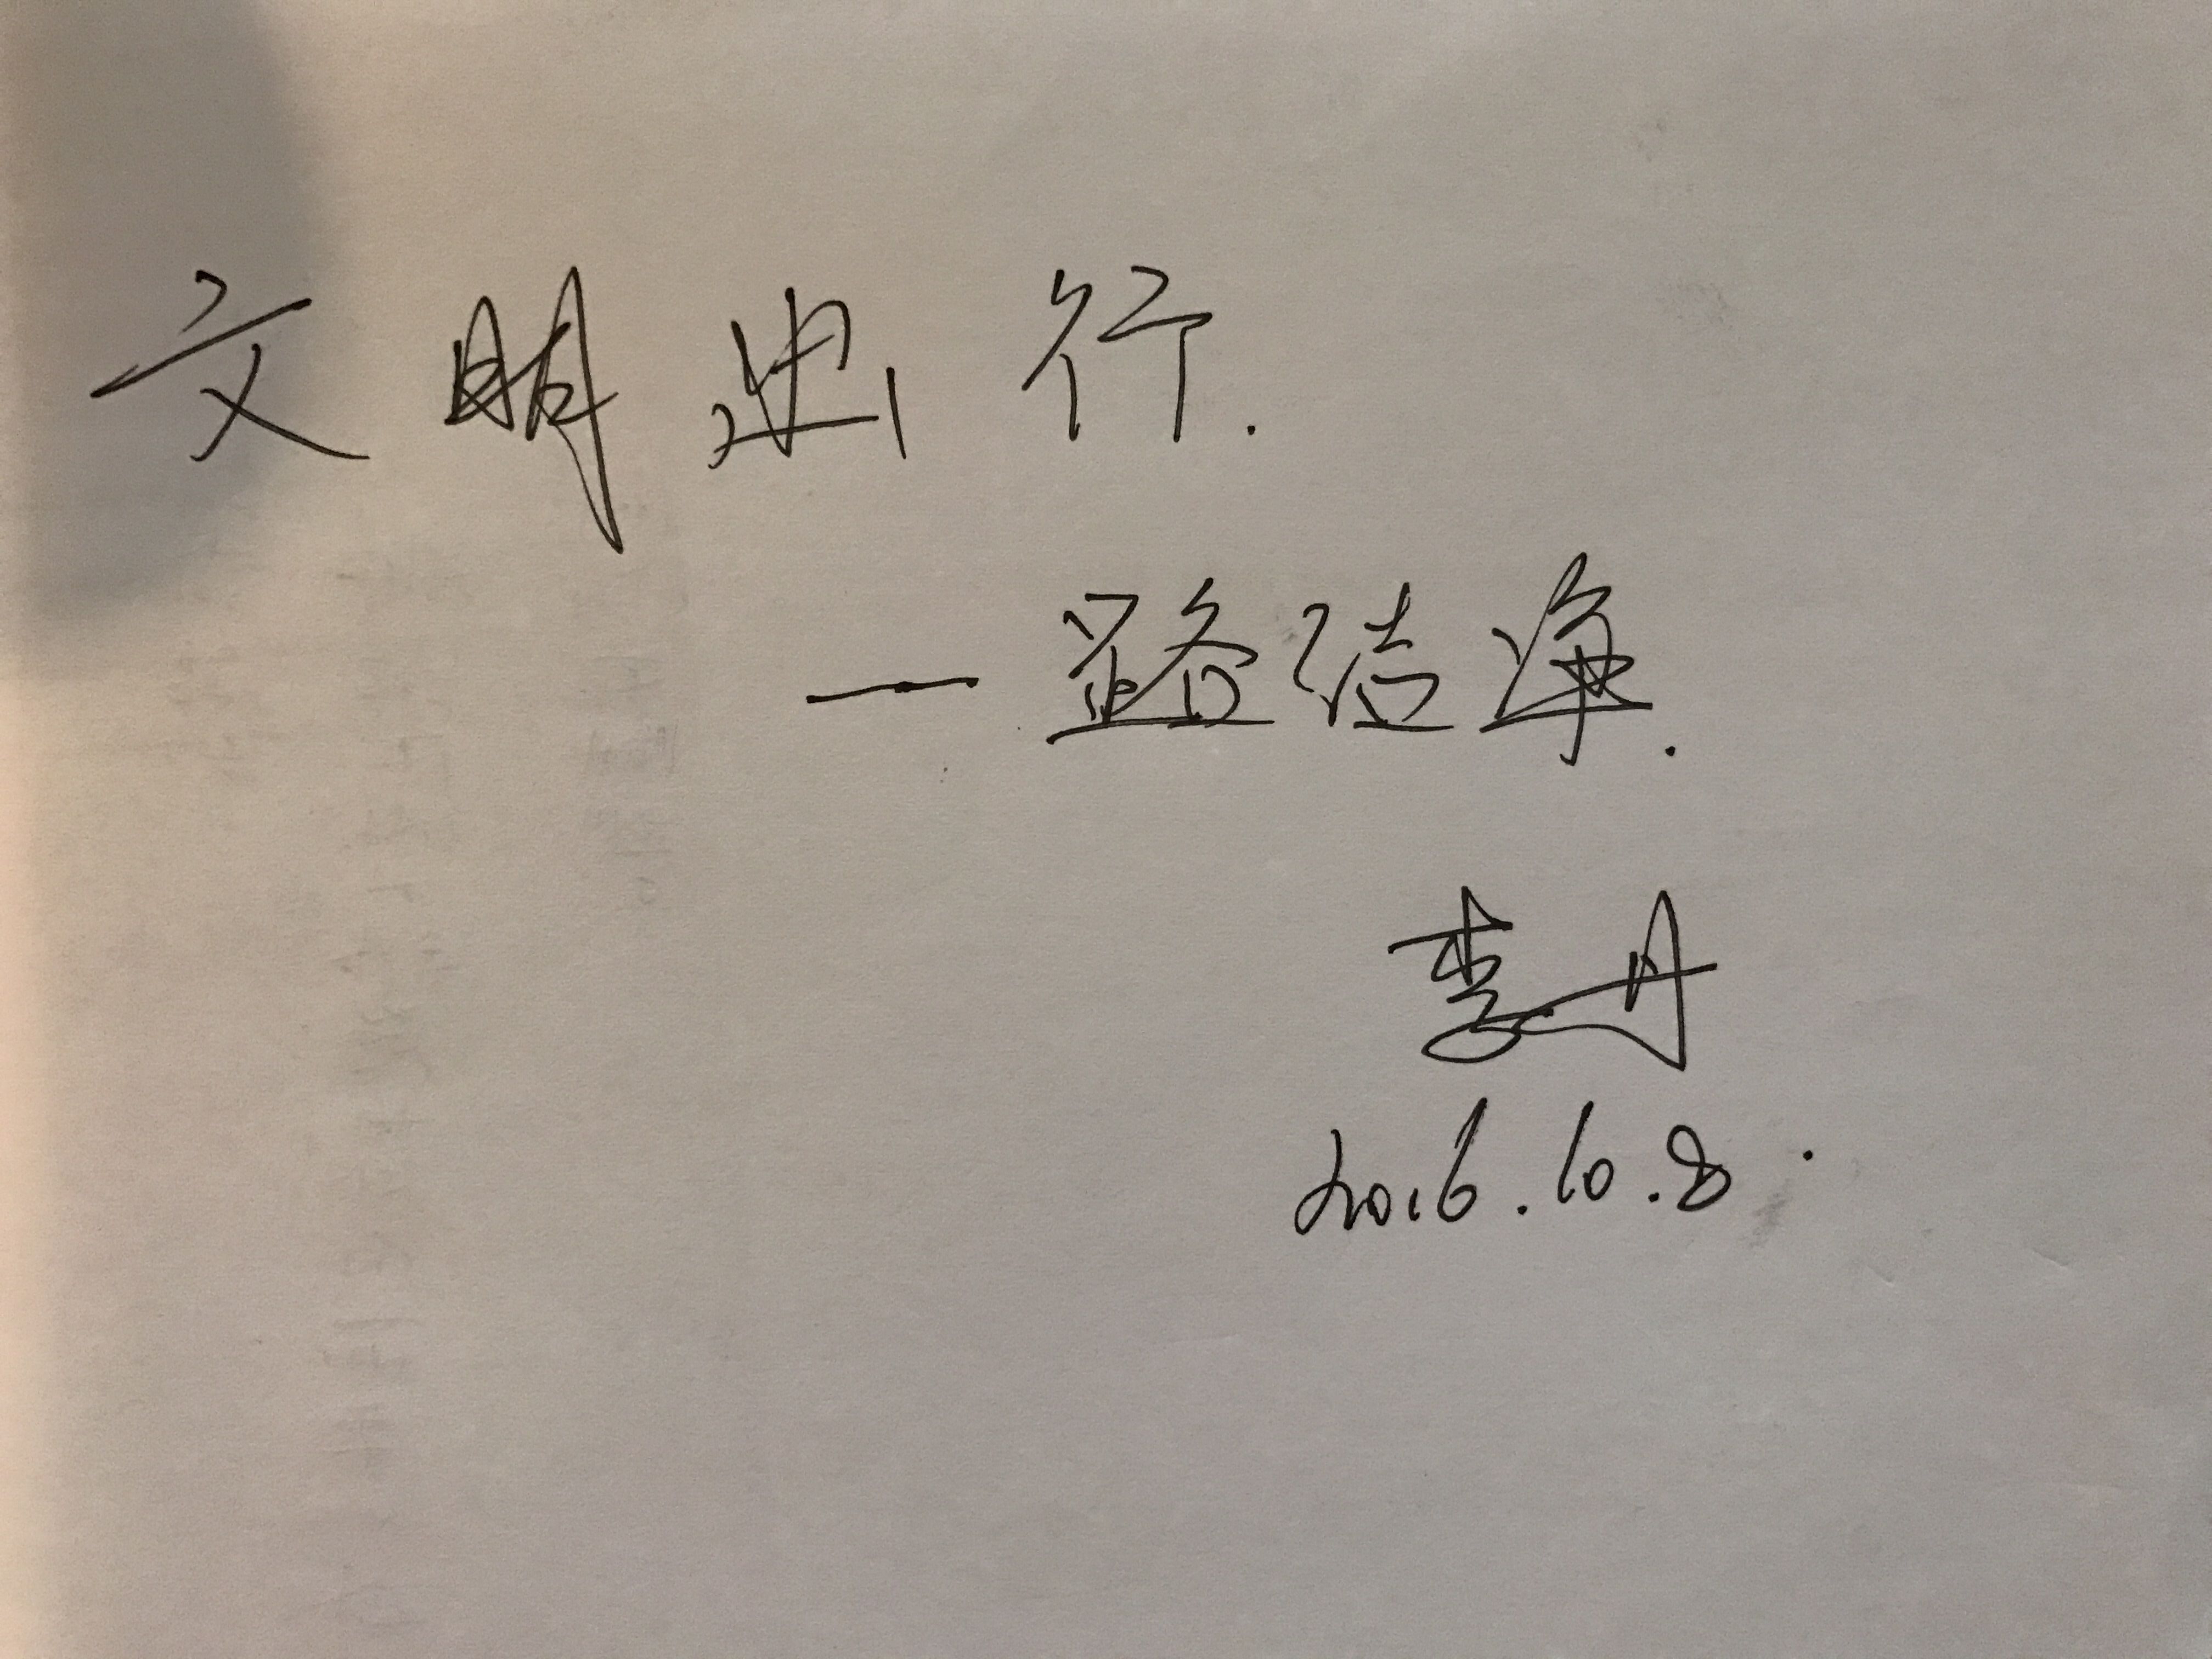 文明出行.
一路洁净.
李丹
2016.10.8.